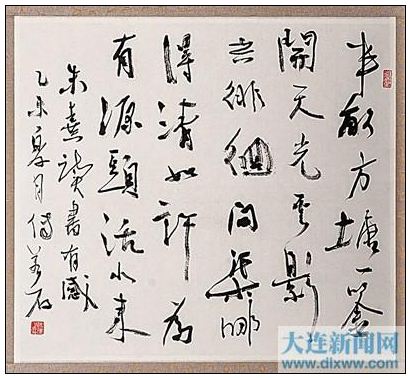 半畝方塘一鑒
開天光雲影
共徘徊問渠哪
得清如許為
有源頭活水來
朱熹讀書有感
乙未夏月
大连新闻网
www.dlxww.com